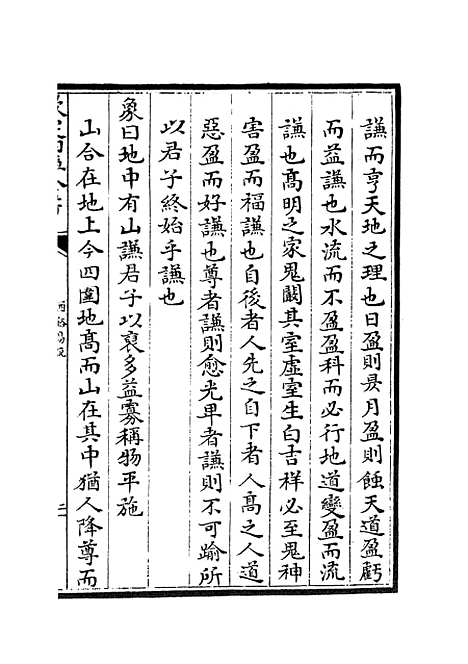 謙而亨天地之理也日盈則昃月盈則蝕天道盈虧
而益謙也水流而不盈盈科而必行地道變盈而流
謙也髙明之家鬼闞其室虛室生白吉祥必至鬼神
害盈而福謙也自後者人先之自下者人髙之人道
惡盈而好謙也尊者謙則愈光卑者謙則不可踰所
以君子終始乎謙也
象曰地中有山謙君子以裒多益寡稱物平施
山合在地上今四圍地髙而山在其中猶人降尊而
西谿易說